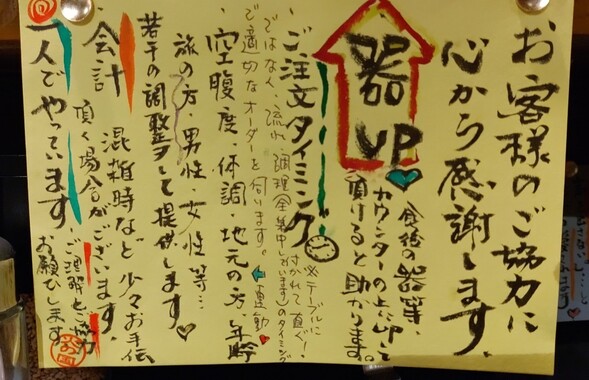 お客様のご協力に
心から感謝します。
器UP
食後の器等、
カウンターの上に
頂けると助かります。
ご注文タイミング
※テーブルに
つかれて直ぐ!
ではなく、流れ・調理(全集中しています)のタイミング
で適切なオーダーを伺います。
運動
空腹度・体調・地元の方、年齢
旅の方・男性・女性等…
若干の調整をして提供します。
会計
混雑時など少々お手伝
頂く場合がございます。
一人でやっています。
ご理解とご協力
お願いします